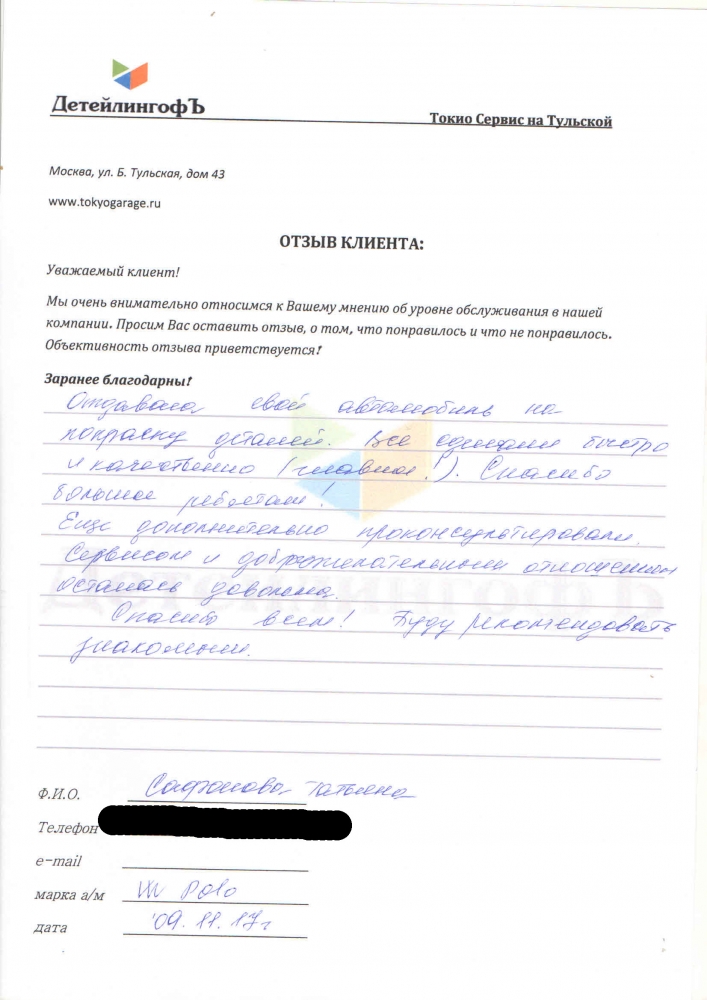 ДетейлингофЪ
Токио Сервис на Тульской
Москва, ул. Б. Тульская, дом 43
www.tokyogarage.ru
ОТЗЫВ КЛИЕНТА:
Уважаемый клиент!
Мы очень внимательно относимся к Вашему мнению об уровне обслуживания в нашей
компании. Просим Вас оставить отзыв, о том, что понравилось и что не понравилось.
Объективность отзыва приветствуется!
Заранее благодарны!
Отдавала свой автомобиль на
покраску деталей. Все сделали быстро
и качественно (главное!). Спасибо
большое ребятам!
Еще дополнительно проконсультировали.
Сервисом и доброжелательным отношением
осталась довольна.
Спасибо всем! Буду рекомендовать
знакомым.
Ф.И.О. Сафронова Татьяна
Телефон
e-mail
марка а/м VW Polo
дата 09.11.17г